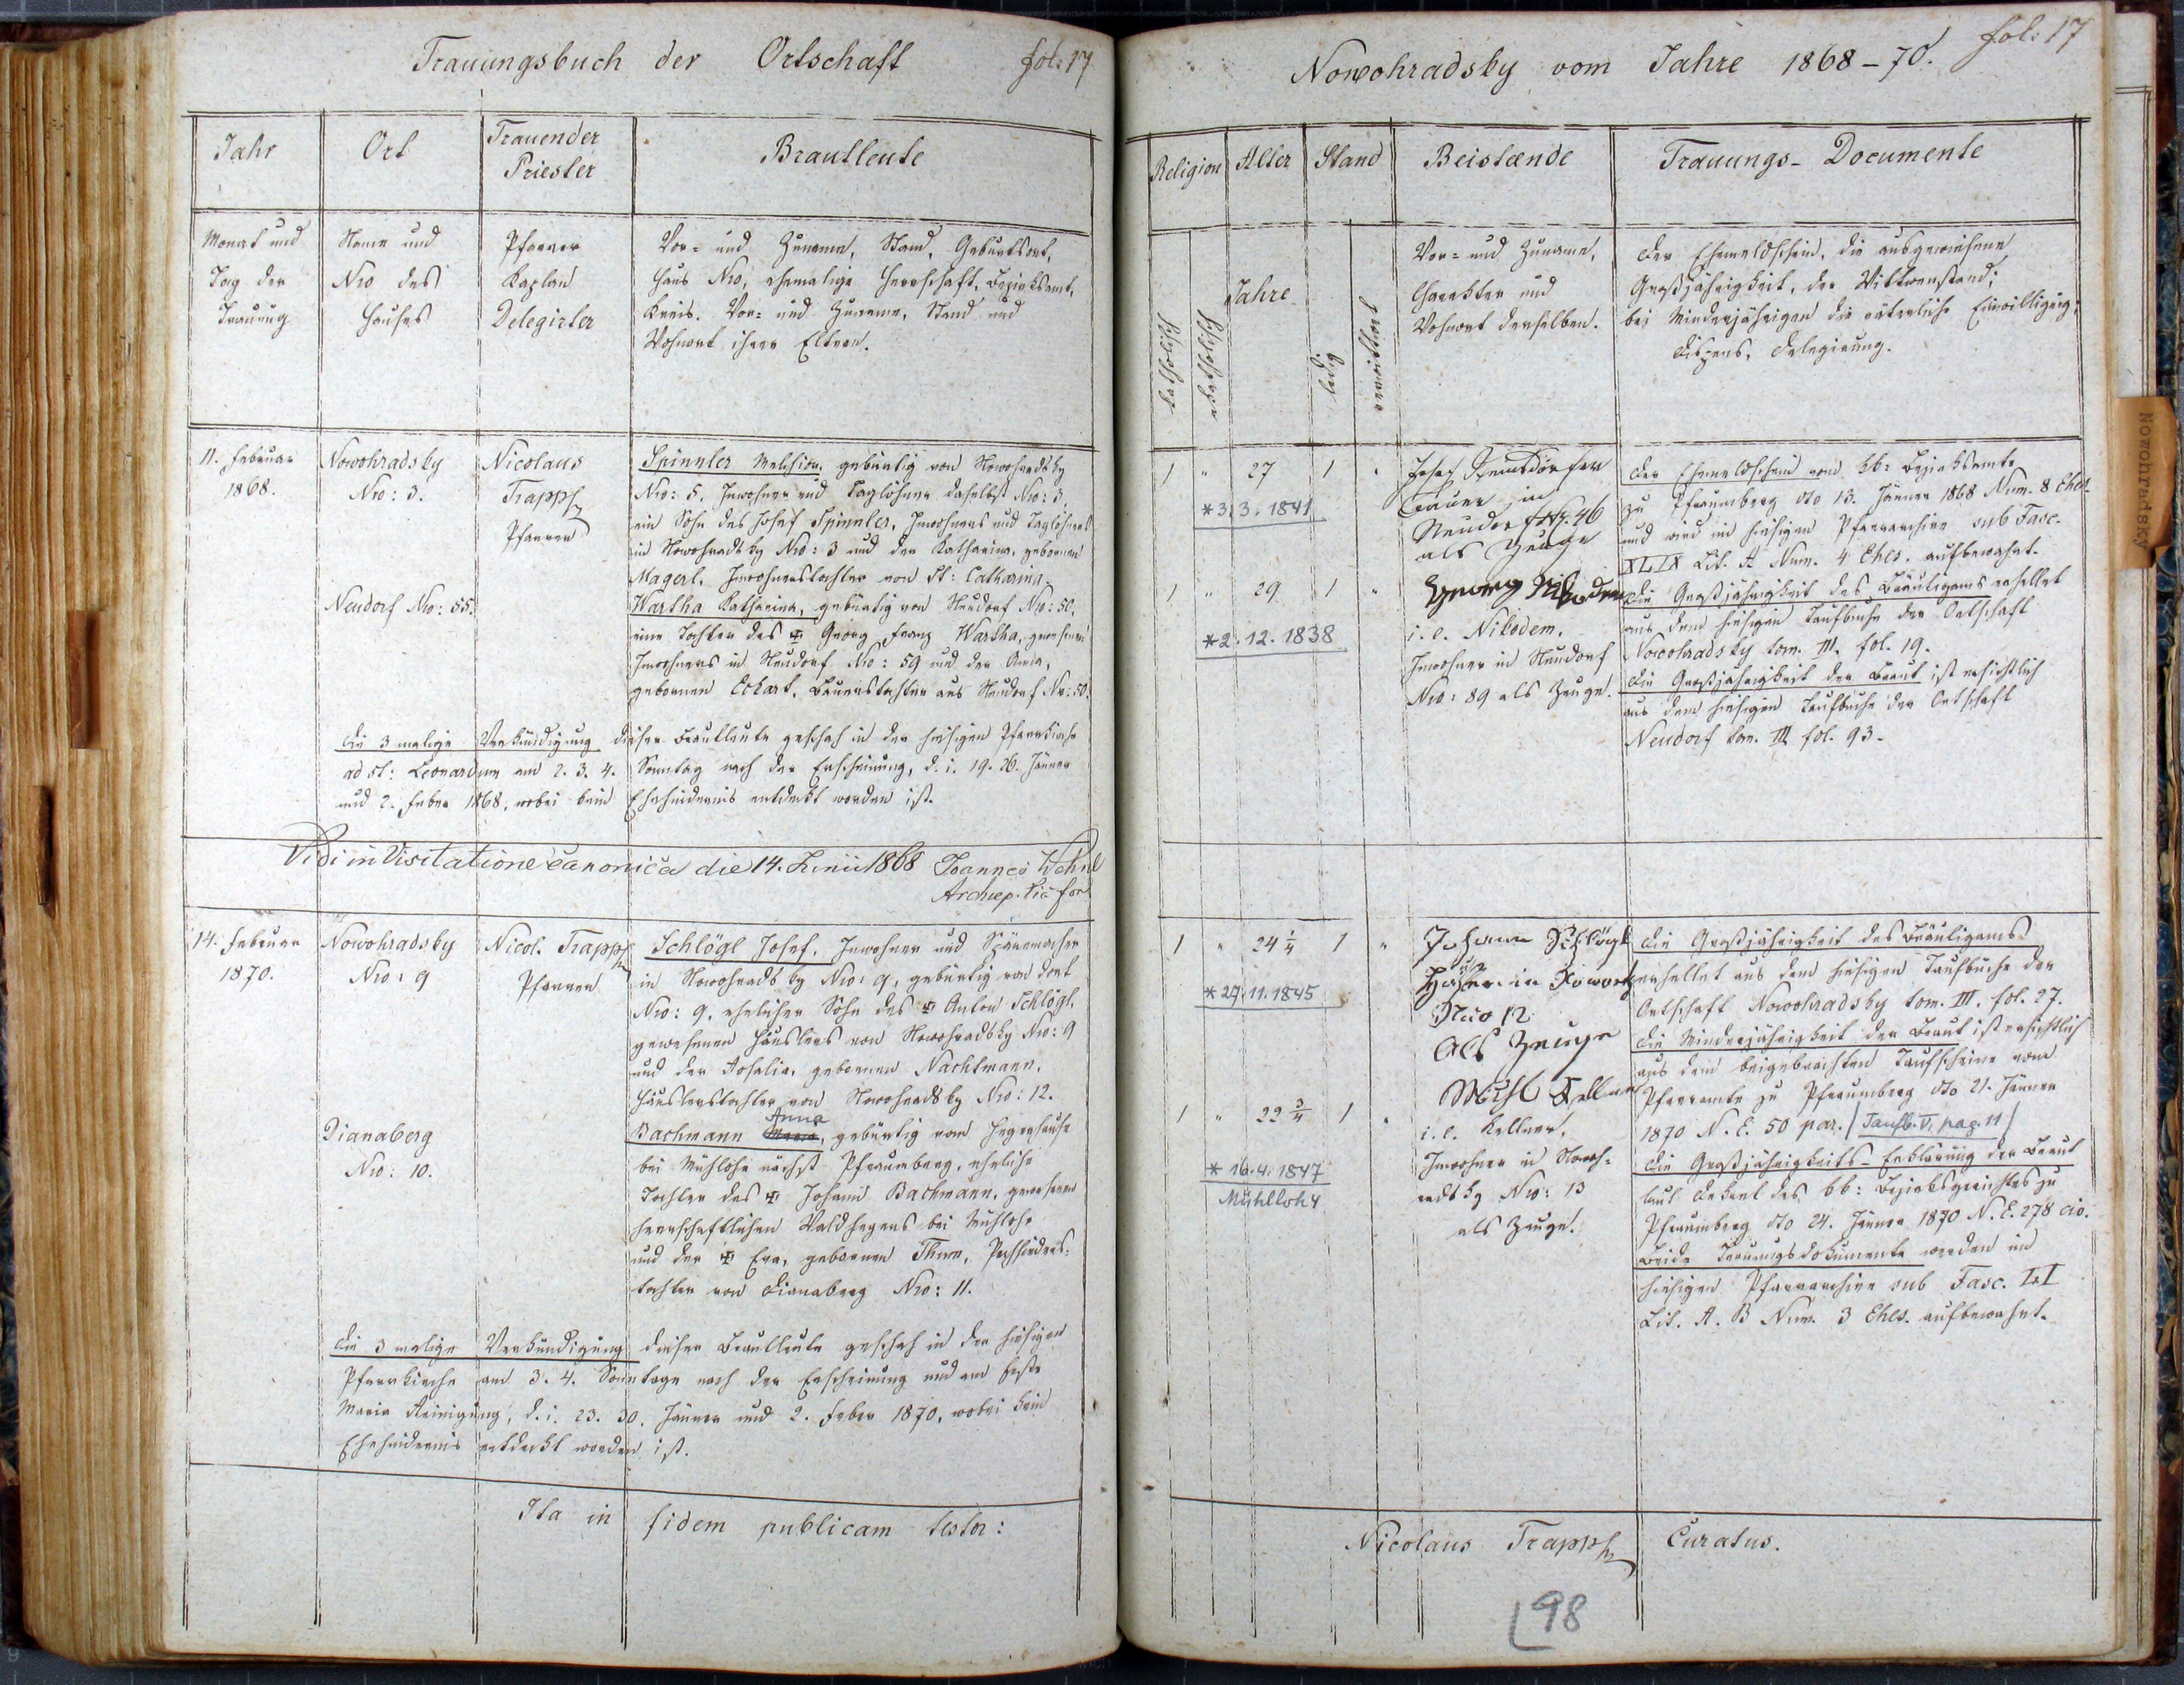 Trauungsbuch der Ortschaft fol: 17
Jahr
Ort
Trauender
Priester
Brautleute
Monat und
Tag der
Trauung
Name und
Nro des
Hauses
Pfarrer
Kaplan
Delegirter
Vor- und Zuname, Stand, Geburtsort,
Haus Nro, ehemalige Herrschaft, Bezirksamt,
Kreis. Vor- und Zuname, Stand und
Wohnort ihrer Eltern.
11. Februar
1868.
Nowohradsky
Nro: 3.
Neudorf Nro: 55.
Nicolaus
Trapp
Pfarrer
Spinnler Melchior, gebürtig von Nowohradsky
Nro: 5, Inwohner und Taglöhner daselbst Nro: 3,
ein Sohn des Josef Spinnler, Inwohners und Taglöhners
in Nowohradsky Nro: 3 und der Katharina, gebornen
Magerl, Inwohnerstochter von St: Catharina.
Wartha Katharina, gebürtig von Neudorf Nro: 50,
eine Tochter des Georg Franz Wartha, gewesenen
Inwohners in Neudorf Nro: 59 und der Anna,
gebornen Eckart, Bauerstochter aus Neudorf Nr: 50.
Die 3 malige Verkündigung dieser Brautleute geschah in der hiesigen Pfarrkirche
ad St: Leonardum am 2. 3. 4. Sonntag nach der Erscheinung, d. i. 19. 26. Jänner
und 2. Feber 1868, wobei kein Ehehindernis entdeckt worden ist.
Vidi in Visitatione canonica die 14. Junii 1868 Joannes Wehnl
14. Februar
1870.
Nowohradsky
Nro: 9
Dianaberg
Nro: 10.
Nicol. Trapp
Pfarrer
Schlögl Josef, Inwohner und Spänmacher
in Nowohradsky Nro: 9, gebürtig von dort
Nro: 9, ehelicher Sohn des Anton Schlögl,
gewesenen Häuslers von Nowohradsky Nro: 9
und der Rosalia, gebornen Nachtmann,
Häuslerstochter von Nowohradsky Nro: 12.
Anna
Bachmann Maria, gebürtig vom Hegerhause
bei Mühlohe nächst Pfraumberg, eheliche
Tochter des Johann Bachmann, gewesenen
herrschaftlichen Waldhegers bei Mühlohe
und der Eva, gebornen Thum,
tochter von Dianaberg Nro: 11.
Die 3 malige Verkündigung dieser Brautleute geschah in der hiesigen
Pfarrkirche am 3. 4. Sonntage nach der Erscheinung und am Feste
Maria Reinigung, d. i. 23. 30. Jänner und 2. Feber 1870, wobei kein
Ehehindernis entdeckt worden ist.
Ita in fidem publicam testor:
Nowohradsky vom Jahre 1868-70. fol: 17
Religion
Alter
Stand
Beistænde
Trauungs-Documente
katholisch
akatholisch
Jahre
ledig
verwittwet
Vor- und Zuname,
Charakter und
Wohnort derselben.
Der Ehemeldschein, die ausgewiesene
Großjährigkeit, der Wittwenstand;
bei Minderjährigen die väterliche Einwilligung;
Dispens, Delegirung.
1 " 27 1 "
*3.3.1841
1 " 29 1 "
*2.12.1838
Josef
Bauer in
Neudorf No. 46
als Zeuge
Georg Nikodem
i. e. Nikodem,
Inwohner in Neudorf
Nro: 89 als Zeuge.
Der Ehemeldschein vom kk: Bezirksamte
zu Pfraumberg dto 13. Jänner 1868 Num. 8 Ehes.
und wird im hiesigen Pfarrarchive sub Fasc.
XLIX Lit. A Num. 4 Ehes. aufbewahrt.
Die Großjährigkeit des Bräutigams erhellet
aus dem hiesigen Taufbuche der Ortschaft
Nowohradsky tom. III. fol. 19.
Die Großjährigkeit der Braut ist ersichtlich
aus dem hiesigen Taufbuche der Ortschaft
Neudorf tom. III fol. 93.
1 " 24 1/4 1 "
*27.11.1845
1 " 22 3/4 1 "
*16.4.1847
Mühlloh 4
Johann Schlögl
Nro 12
Als Zeuge
i. e. Kellner,
Inwohner in Nowoh-
radsky Nro: 13
als Zeuge.
Die Großjährigkeit des Bräutigams
erhellet aus dem hiesigen Taufbuche der
Ortschaft Nowohradsky tom. III. fol. 27.
Die Minderjährigkeit der Braut ist ersichtlich
aus dem beigebrachten Taufscheine vom
Pfarramte zu Pfraumberg dto 21. Jänner
1870 N. E. 50 par. / Taufb. V. pag. 11 /
Die Großjährigkeits-Erklärung der Braut
laut Dekret des kk: Bezirksgerichtes zu
Pfraumberg dto 24. Jänner 1870 N. E. 278 civ.
Beide Trauungsdokumente werden im
hiesigen Pfarrarchive sub Fasc.
Lit. A. B Num. 3 Ehes. aufbewahrt.
Nicolaus Trapp Curatus.
98
Nowohradsky